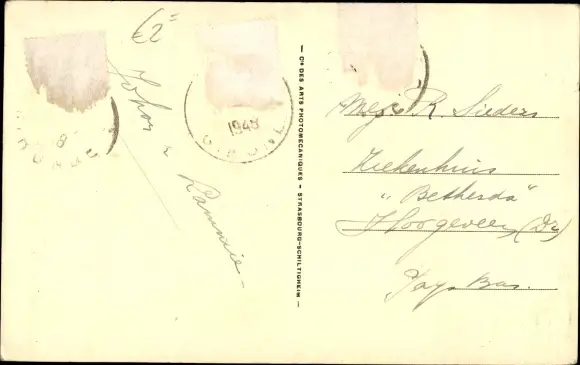 €2=
Johon
&
1948
— Cie DES ARTS PHOTOMECANIQUES — STRASBOURG-SCHILTIGHEIM —
Mej. R. Sieders
Ziekenhuis
„Bethesda"
Hoogeveen (Dr)
Pays Bas.